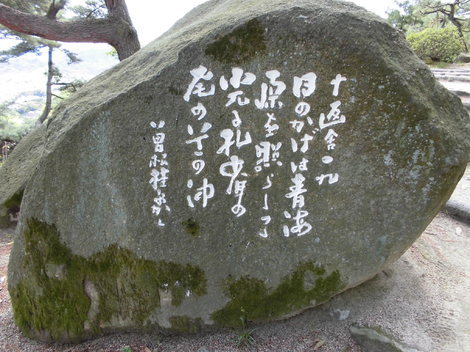 十返舎一九
日のかげは青海
原を照らしつゝ
光る孔雀の
尾の道の沖